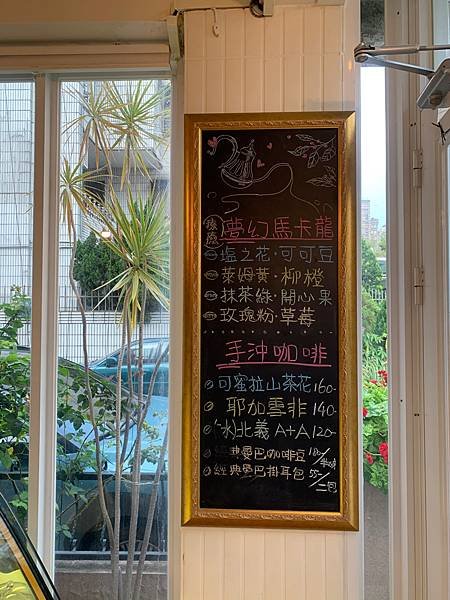 夢幻馬卡龍
塩之花·可可豆
萊姆黃·柳橙
抹茶綠·開心果
玫瑰粉·草莓
手沖咖啡
可蜜拉山茶花160-
耶加雪非140-
北義A+A120-
典曼巴咖啡豆180/
經典曼巴掛耳包55-/包